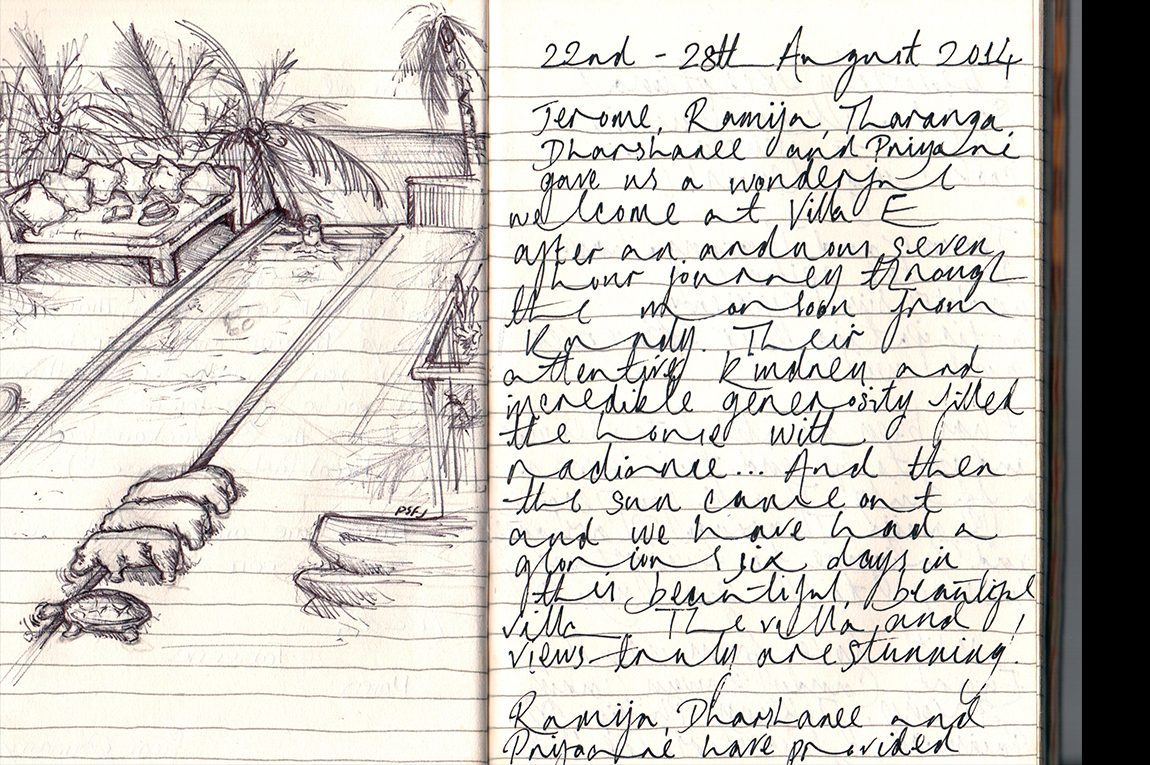 22nd - 28th August 2014
Jerome, Ramija, Tharanga,
Dharshanee and Priyanie
gave us a wonderful
welcome at Villa E
after an arduous seven
hour journey through
the monsoon from
Kandy. Their
attentive kindness and
incredible generosity filled
the house with
radiance... And then
the sun came out
and we have had a
glorious six days in
this beautiful, beautiful
villa. The villa and
views truly are stunning.
Ramija, Dharshanee and
Priyanie have provided
PSFJ